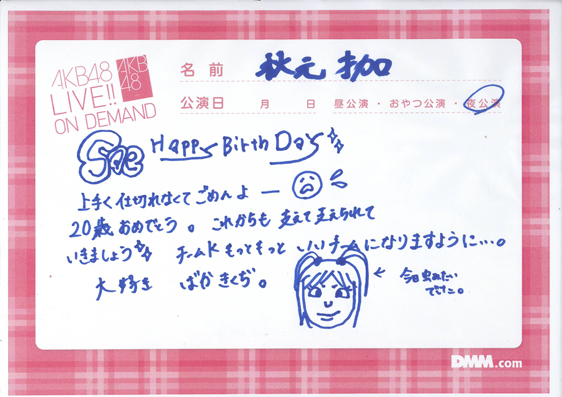 AKB48
LIVE!!
ON DEMAND
AKB
48
名前 秋元才加
公演日 月 日 昼公演・おやつ公演・夜公演
Sae Happy Birth Day
上手く仕切れなくてごめんよー
20歳おめでとう。これからも支えて支えられて
いきましょう チームKもっともっといいチームになりますように…。
大好き ばかきくぢ。
← 今日虫みたい
でした。
DMM.com